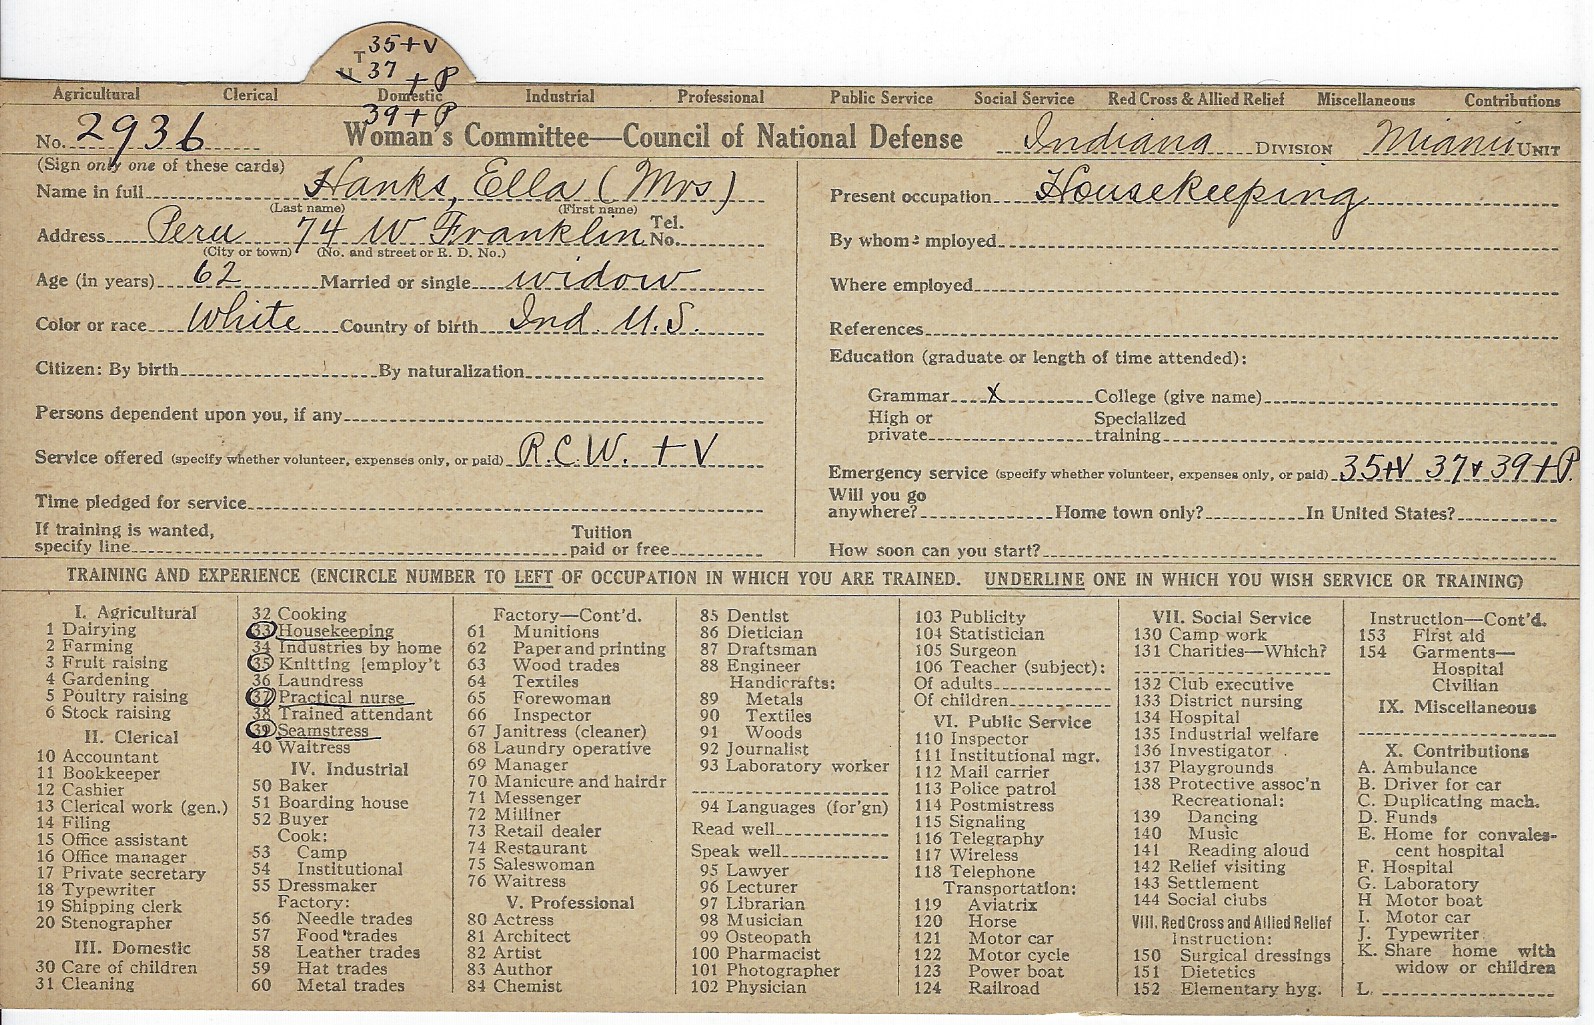 35+V
T 37 + P
Agricultural Clerical Domestic Industrial Professional Public Service Social Service Red Cross & Allied Relief Miscellaneous Contributions
39+P
No. 2936 Woman's Committee—Council of National Defense Indiana DIVISION Miami UNIT
(Sign only one of these cards)
Name in full Hanks, Ella (Mrs)
(Last name) (First name)
Address Peru 74 W Franklin Tel. No.
(City or town) (No. and street or R. D. No.)
Age (in years) 62 Married or single widow
Color or race White Country of birth Ind. U.S.
Citizen: By birth By naturalization
Persons dependent upon you, if any
Service offered (specify whether volunteer, expenses only, or paid) R.C.W. + V
Time pledged for service
If training is wanted, specify line Tuition paid or free
Present occupation Housekeeping
By whom employed
Where employed
References
Education (graduate or length of time attended):
Grammar X College (give name)
High or private Specialized training
Emergency service (specify whether volunteer, expenses only, or paid) 35+V 37+39+P.
Will you go anywhere? Home town only? In United States?
How soon can you start?
TRAINING AND EXPERIENCE (ENCIRCLE NUMBER TO LEFT OF OCCUPATION IN WHICH YOU ARE TRAINED. UNDERLINE ONE IN WHICH YOU WISH SERVICE OR TRAINING)
I. Agricultural
1 Dairying
2 Farming
3 Fruit raising
4 Gardening
5 Poultry raising
6 Stock raising
II. Clerical
10 Accountant
11 Bookkeeper
12 Cashier
13 Clerical work (gen.)
14 Filing
15 Office assistant
16 Office manager
17 Private secretary
18 Typewriter
19 Shipping clerk
20 Stenographer
III. Domestic
30 Care of children
31 Cleaning
32 Cooking
33 Housekeeping
34 Industries by home
35 Knitting [employ't
36 Laundress
37 Practical nurse
38 Trained attendant
39 Seamstress
40 Waitress
IV. Industrial
50 Baker
51 Boarding house
52 Buyer
Cook:
53 Camp
54 Institutional
55 Dressmaker
Factory:
56 Needle trades
57 Food trades
58 Leather trades
59 Hat trades
60 Metal trades
Factory—Cont'd.
61 Munitions
62 Paper and printing
63 Wood trades
64 Textiles
65 Forewoman
66 Inspector
67 Janitress (cleaner)
68 Laundry operative
69 Manager
70 Manicure and hairdr
71 Messenger
72 Milliner
73 Retail dealer
74 Restaurant
75 Saleswoman
76 Waitress
V. Professional
80 Actress
81 Architect
82 Artist
83 Author
84 Chemist
85 Dentist
86 Dietician
87 Draftsman
88 Engineer
Handicrafts:
89 Metals
90 Textiles
91 Woods
92 Journalist
93 Laboratory worker
94 Languages (for'gn)
Read well
Speak well
95 Lawyer
96 Lecturer
97 Librarian
98 Musician
99 Osteopath
100 Pharmacist
101 Photographer
102 Physician
103 Publicity
104 Statistician
105 Surgeon
106 Teacher (subject):
Of adults
Of children
VI. Public Service
110 Inspector
111 Institutional mgr.
112 Mail carrier
113 Police patrol
114 Postmistress
115 Signaling
116 Telegraphy
117 Wireless
118 Telephone
Transportation:
119 Aviatrix
120 Horse
121 Motor car
122 Motor cycle
123 Power boat
124 Railroad
VII. Social Service
130 Camp work
131 Charities—Which?
132 Club executive
133 District nursing
134 Hospital
135 Industrial welfare
136 Investigator
137 Playgrounds
138 Protective assoc'n
Recreational:
139 Dancing
140 Music
141 Reading aloud
142 Relief visiting
143 Settlement
144 Social clubs
VIII. Red Cross and Allied Relief
Instruction:
150 Surgical dressings
151 Dietetics
152 Elementary hyg.
Instruction—Cont'd.
153 First aid
154 Garments—
Hospital
Civilian
IX. Miscellaneous
X. Contributions
A. Ambulance
B. Driver for car
C. Duplicating mach.
D. Funds
E. Home for convales-
cent hospital
F. Hospital
G. Laboratory
H Motor boat
I. Motor car
J. Typewriter
K. Share home with
widow or children
L